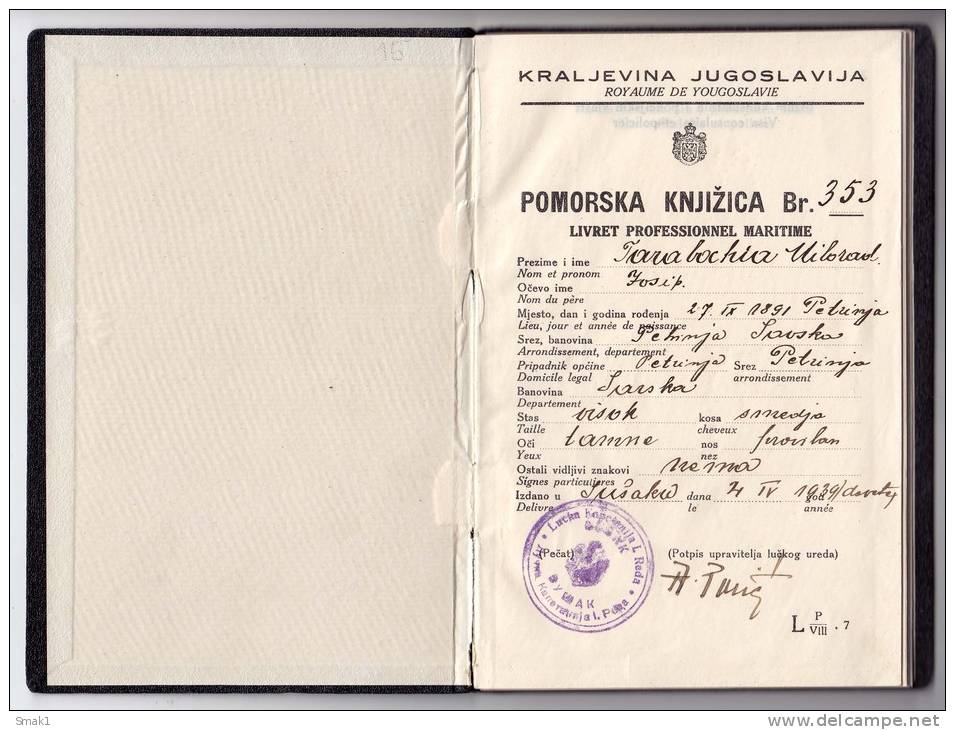 16
KRALJEVINA JUGOSLAVIJA
ROYAUME DE YOUGOSLAVIE
Visa consulaire et policier
POMORSKA KNJIŽICA Br. 353
LIVRET PROFESSIONNEL MARITIME
Prezime i ime Tarabochia Milorad
Nom et pronom
Očevo ime Josip.
Nom du père
Mjesto, dan i godina rođenja 27. IX 1891 Petrinja
Lieu, jour et année de naissance
Srez, banovina Petrinja Savska
Arrondissement, departement
Pripadnik općine Petrinja Srez Petrinja
Domicile legal arrondissement
Banovina Savska
Departement
Stas visok kosa smedja
Taille cheveux
Oči tamne nos
Yeux nez
Ostali vidljivi znakovi nema
Signes particulieres
Izdano u Sušaku dana 4 IV 1939 god
Delivre le année
Lučka Kapetanija I. Reda
SUŠAK
(Pečat) (Potpis upravitelja lučkog ureda)
СУШАК
L P/VIII . 7
Smak1
delcampe.net